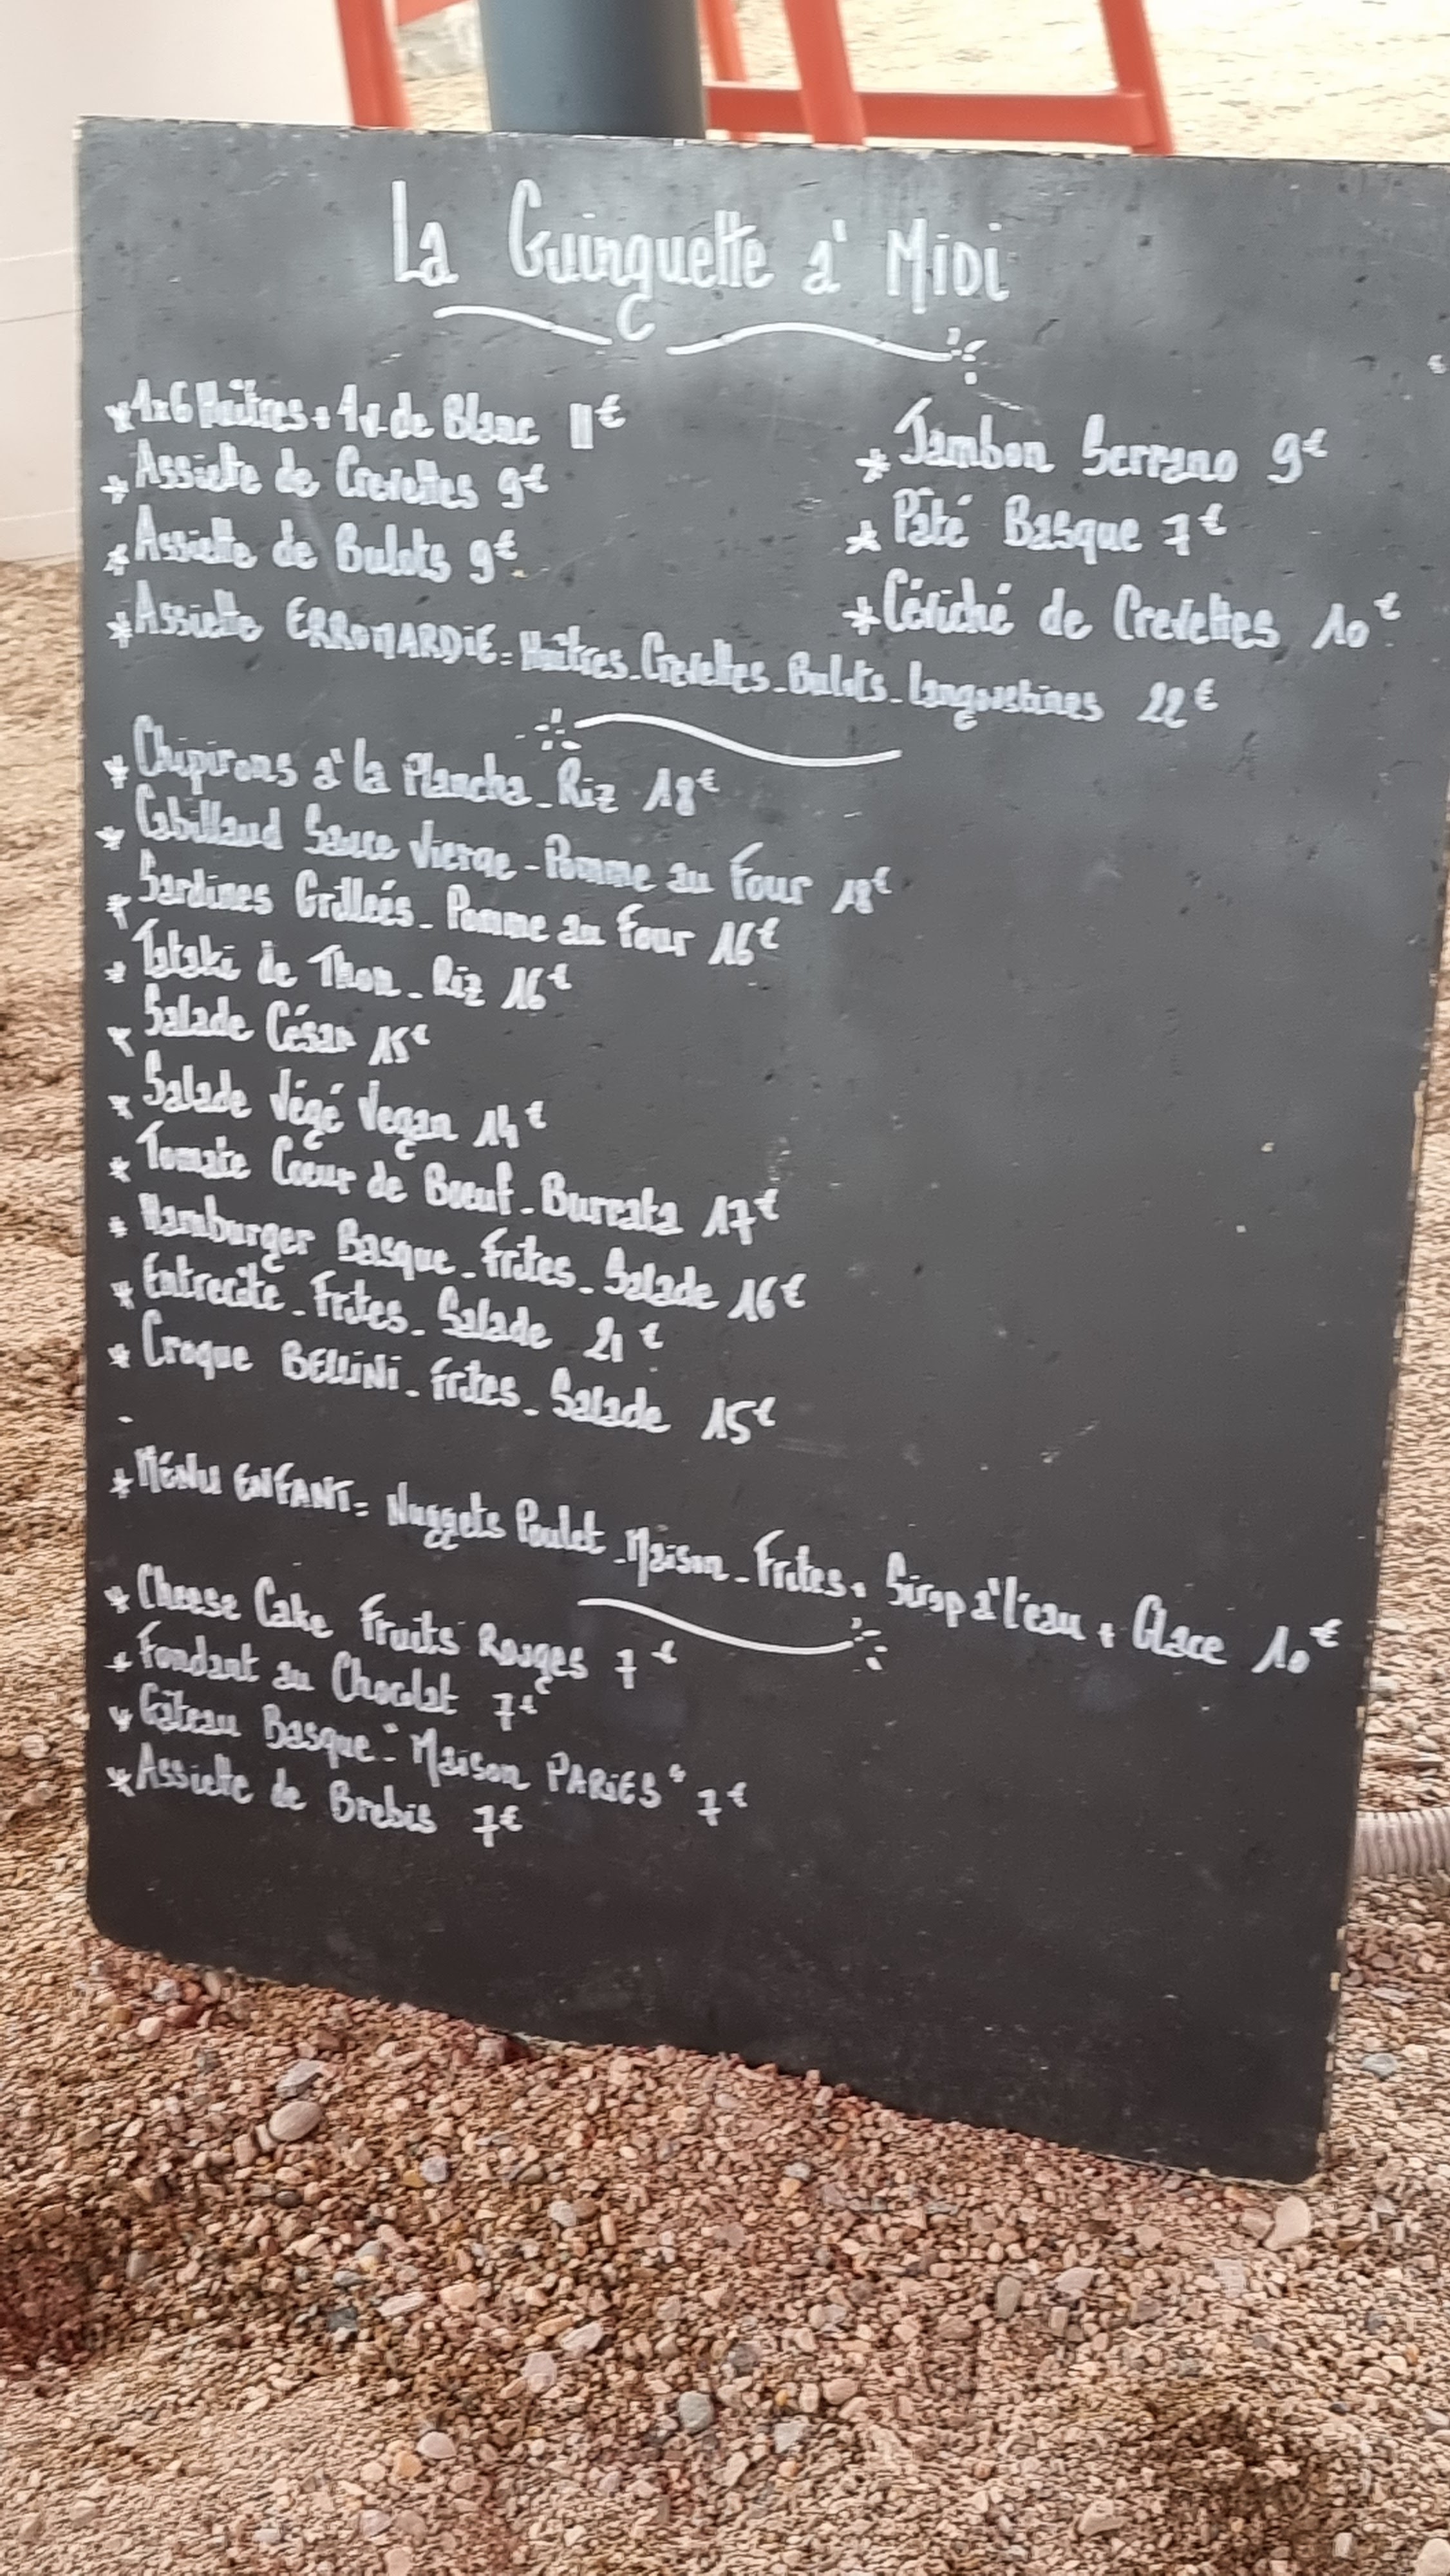 La Guinguette à Midi
* 1x6 Huîtres + 1v. de Blanc 11€
* Assiette de Crevettes 9€
* Assiette de Bulots 9€
* Assiette ERROMARDIE = Huîtres - Crevettes - Bulots - Langoustines 22€
* Jambon Serrano 9€
* Pâté Basque 7€
* Céviché de Crevettes 10€
* Chipirons à la Plancha - Riz 18€
* Cabillaud Sauce Vierge - Pomme au Four 18€
* Sardines Grilleés - Pomme au Four 16€
* Tataki de Thon - Riz 16€
* Salade César 15€
* Salade Végé Vegan 14€
* Tomate Coeur de Boeuf - Burrata 17€
* Hamburger Basque - Frites - Salade 16€
* Entrecôte - Frites - Salade 21€
* Croque BELLINI - Frites - Salade 15€
* MENU ENFANT = Nuggets Poulet - Maison - Frites + Sirop à l'eau + Glace 10€
* Cheese Cake Fruits Rouges 7€
* Fondant au Chocolat 7€
* Gâteau Basque "Maison PARIES" 7€
* Assiette de Brebis 7€